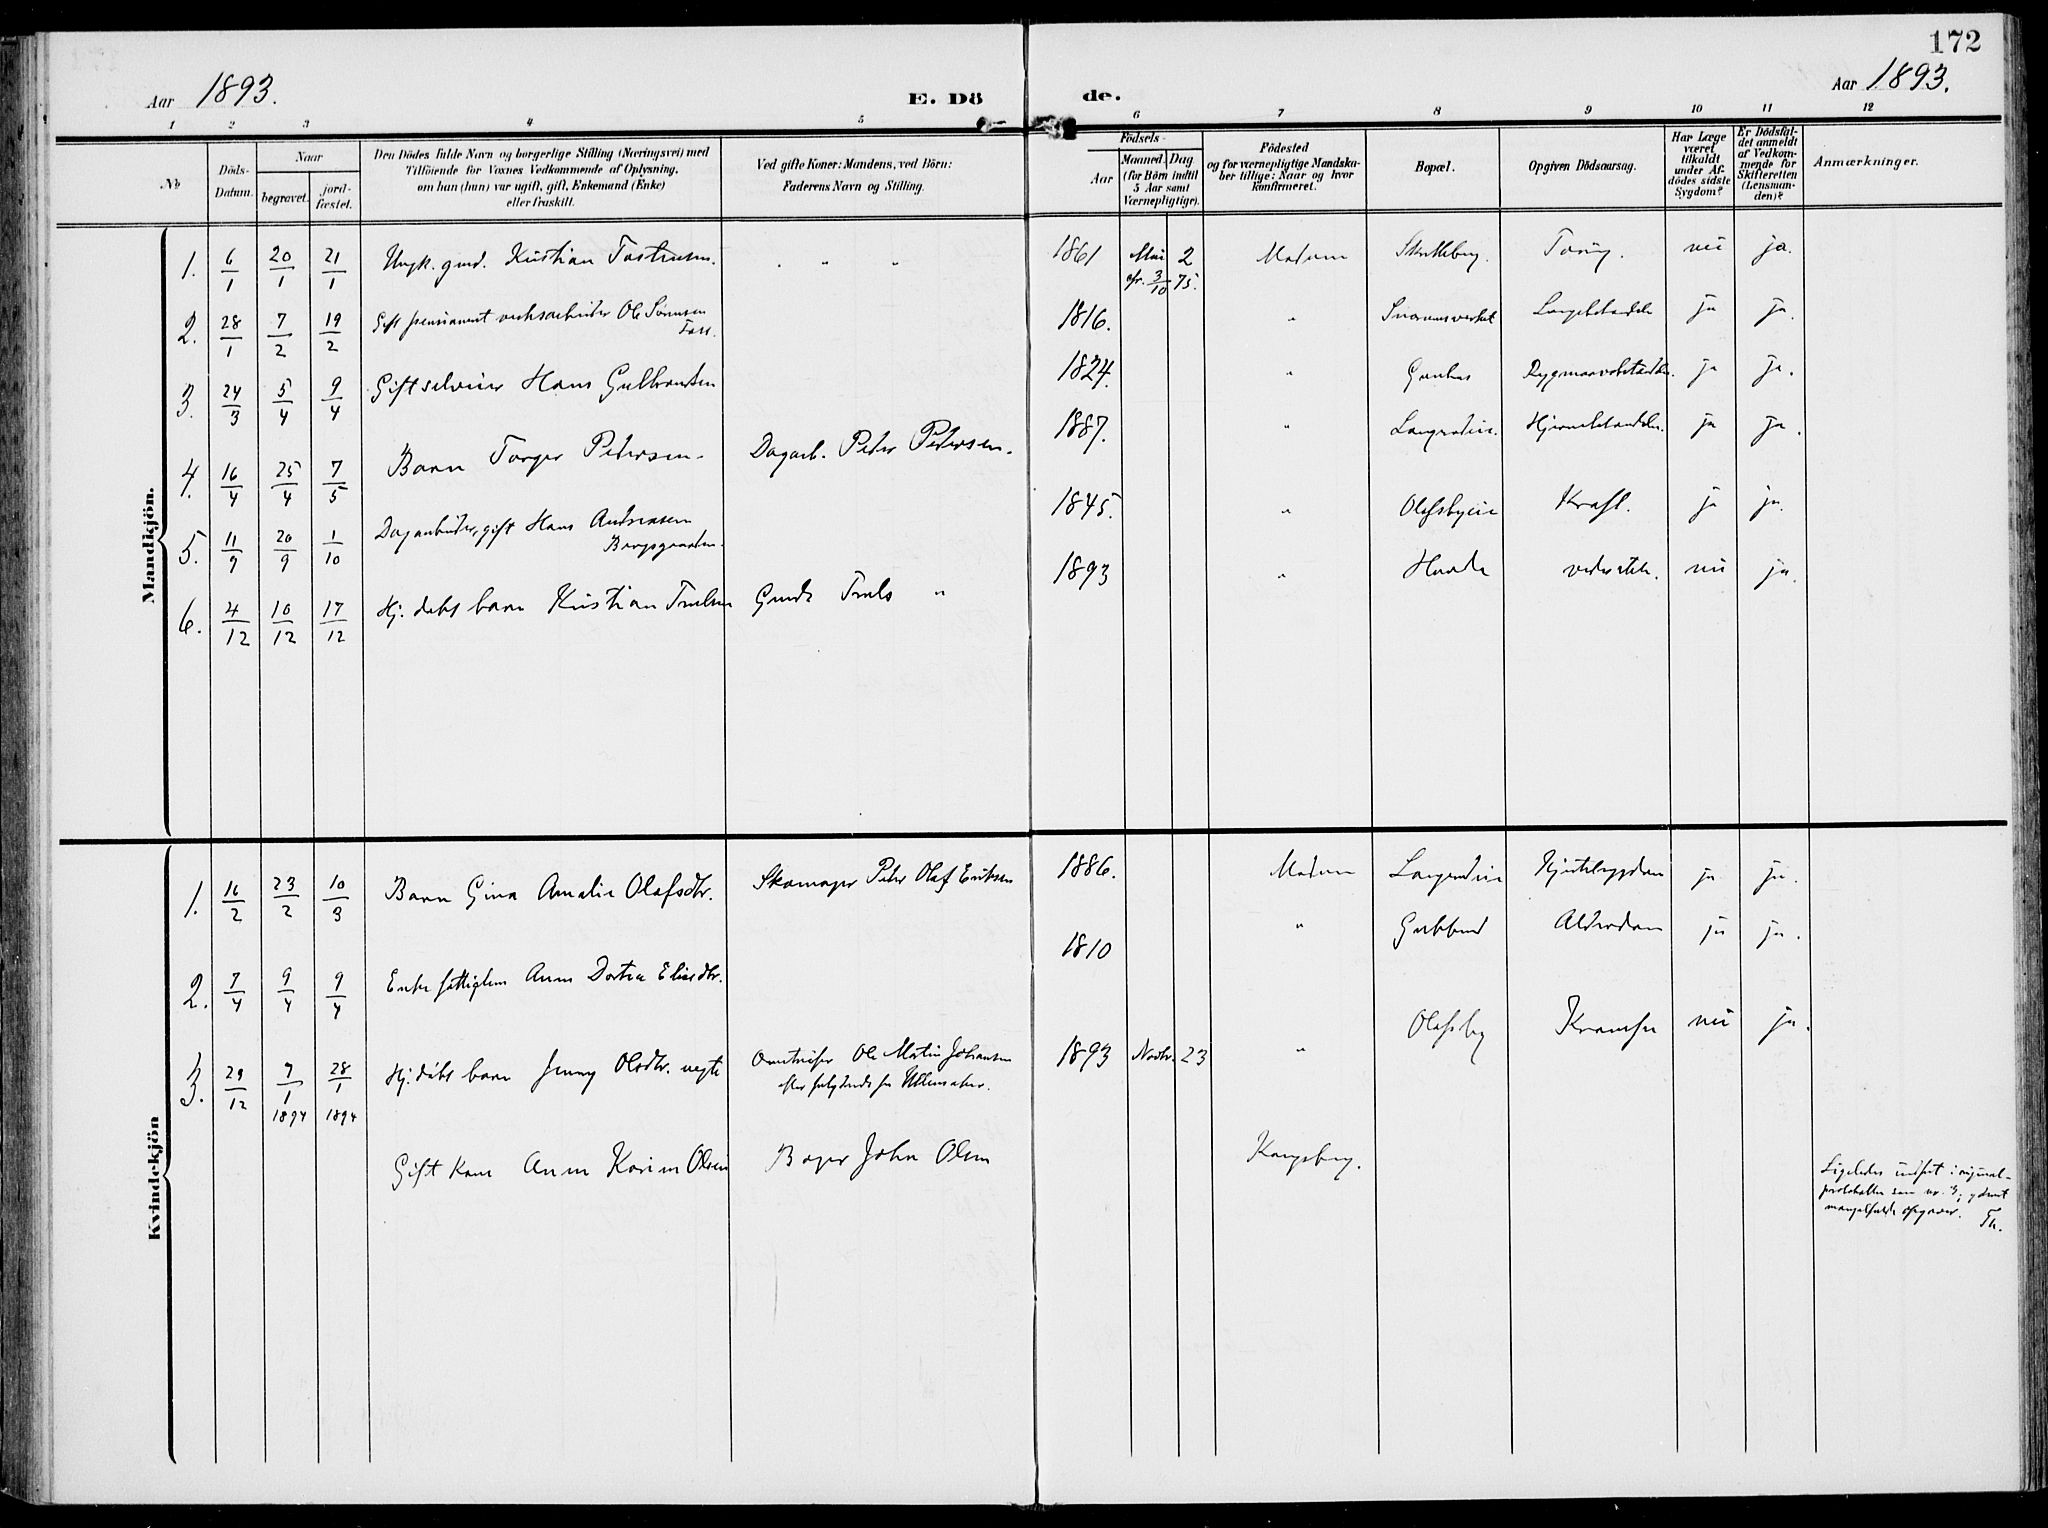 172
Aar 1893.
E. Dö de.
Aar 1893.
1 2 3 4 5 6 7 8 9 10 11 12
No
Döds-
Datum.
Naar
begravet.
jord-
fæstet.
Den Dödes fulde Navn og borgerlige Stilling (Næringsvei) med
Tilföiende for Voxnes Vedkommende af Oplysning,
om han (hun) var ugift, gift, Enkemand (Enke)
eller fraskilt.
Ved gifte Koner: Mandens, ved Börn:
Faderens Navn og Stilling.
Födsels-
Aar
Maaned. Dag
(for Börn indtil
5 Aar samt
Værnepligtige).
Födested
og for værnepligtige Mandska-
ber tillige: Naar og hvor
konfirmeret.
Bopæl.
Opgiven Dödsaarsag.
Har Læge
været
tilkaldt
under Af-
dödes sidste
Sygdom?
Er Dödsfal-
det anmeldt
af Vedkom-
mende for
Skifteretten
(Lensman-
den)?
Anmærkninger.
Mandkjön.
1. 6/1 20/1 21/1 Ungk. gmd. Kristian Tostensen. " " 1861 Mai 2 Modum Skutleberg. Tæring. nei ja.
3/10 75.
2. 28/1 7/2 19/2 Gift pensioneret verksarbeider Ole Sørensen 1816. " ja ja.
Foss.
3. 24/3 5/4 9/4 Gift selveier Hans Gulbrandsen 1824. " Rygmarvsbetændelse. ja ja.
4. 16/4 25/4 7/5 Barn Torger Petersen. Dagarb. Peter Petersen. 1887. " Hjernebetændelse. ja ja.
5. 11/9 20/9 1/10 Dagarbeider, gift Hans Andreasen 1845. " Olafsbyeie Kræft. ja ja.
6. 4/12 10/12 17/12 Hj. døbt barn Kristian Trulsen Gmd. Truls " 1893 " nei ja.
Kvindekjön
1. 16/2 23/2 10/3 Barn Gina Amalie Olafsdtr. Skomager Peter Olaf Eriksen 1886. Modum ja ja.
2. 7/4 9/4 9/4 Enke fattiglem Anne Dortea Eliasdtr. 1810 " Alderdom ja ja.
3. 29/12 7/1 1894 28/1 1894 Hj. døbt barn Jenny Olsdtr. uegte Ole Martin Johansen 1893 Novbr. 23 " Olafsby Krampe nei ja.
Ullensaker.
Gift Kone Anne Karine Olsen Bager John Olsen Kongsberg.
Ligeledes indført i original-
protokollen som nr. 3, yderst
mangelfulde opgaver. Th.